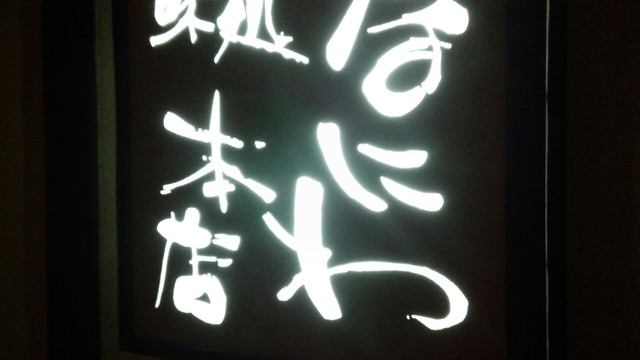 はにわ
味処
本店